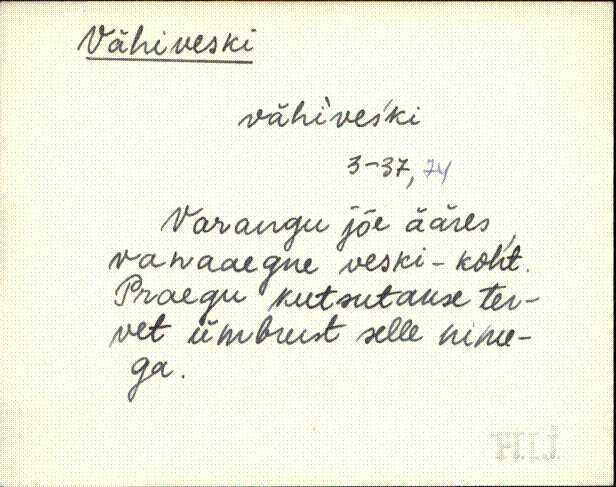 Vähiveski
vähi`ves´ki
3-37, 74
Varangu jõe ääres,
vanaaegne veski-koht.
Praegu kutsutakse ter-
vet ümbrust selle nime-
ga.
H.I.J.